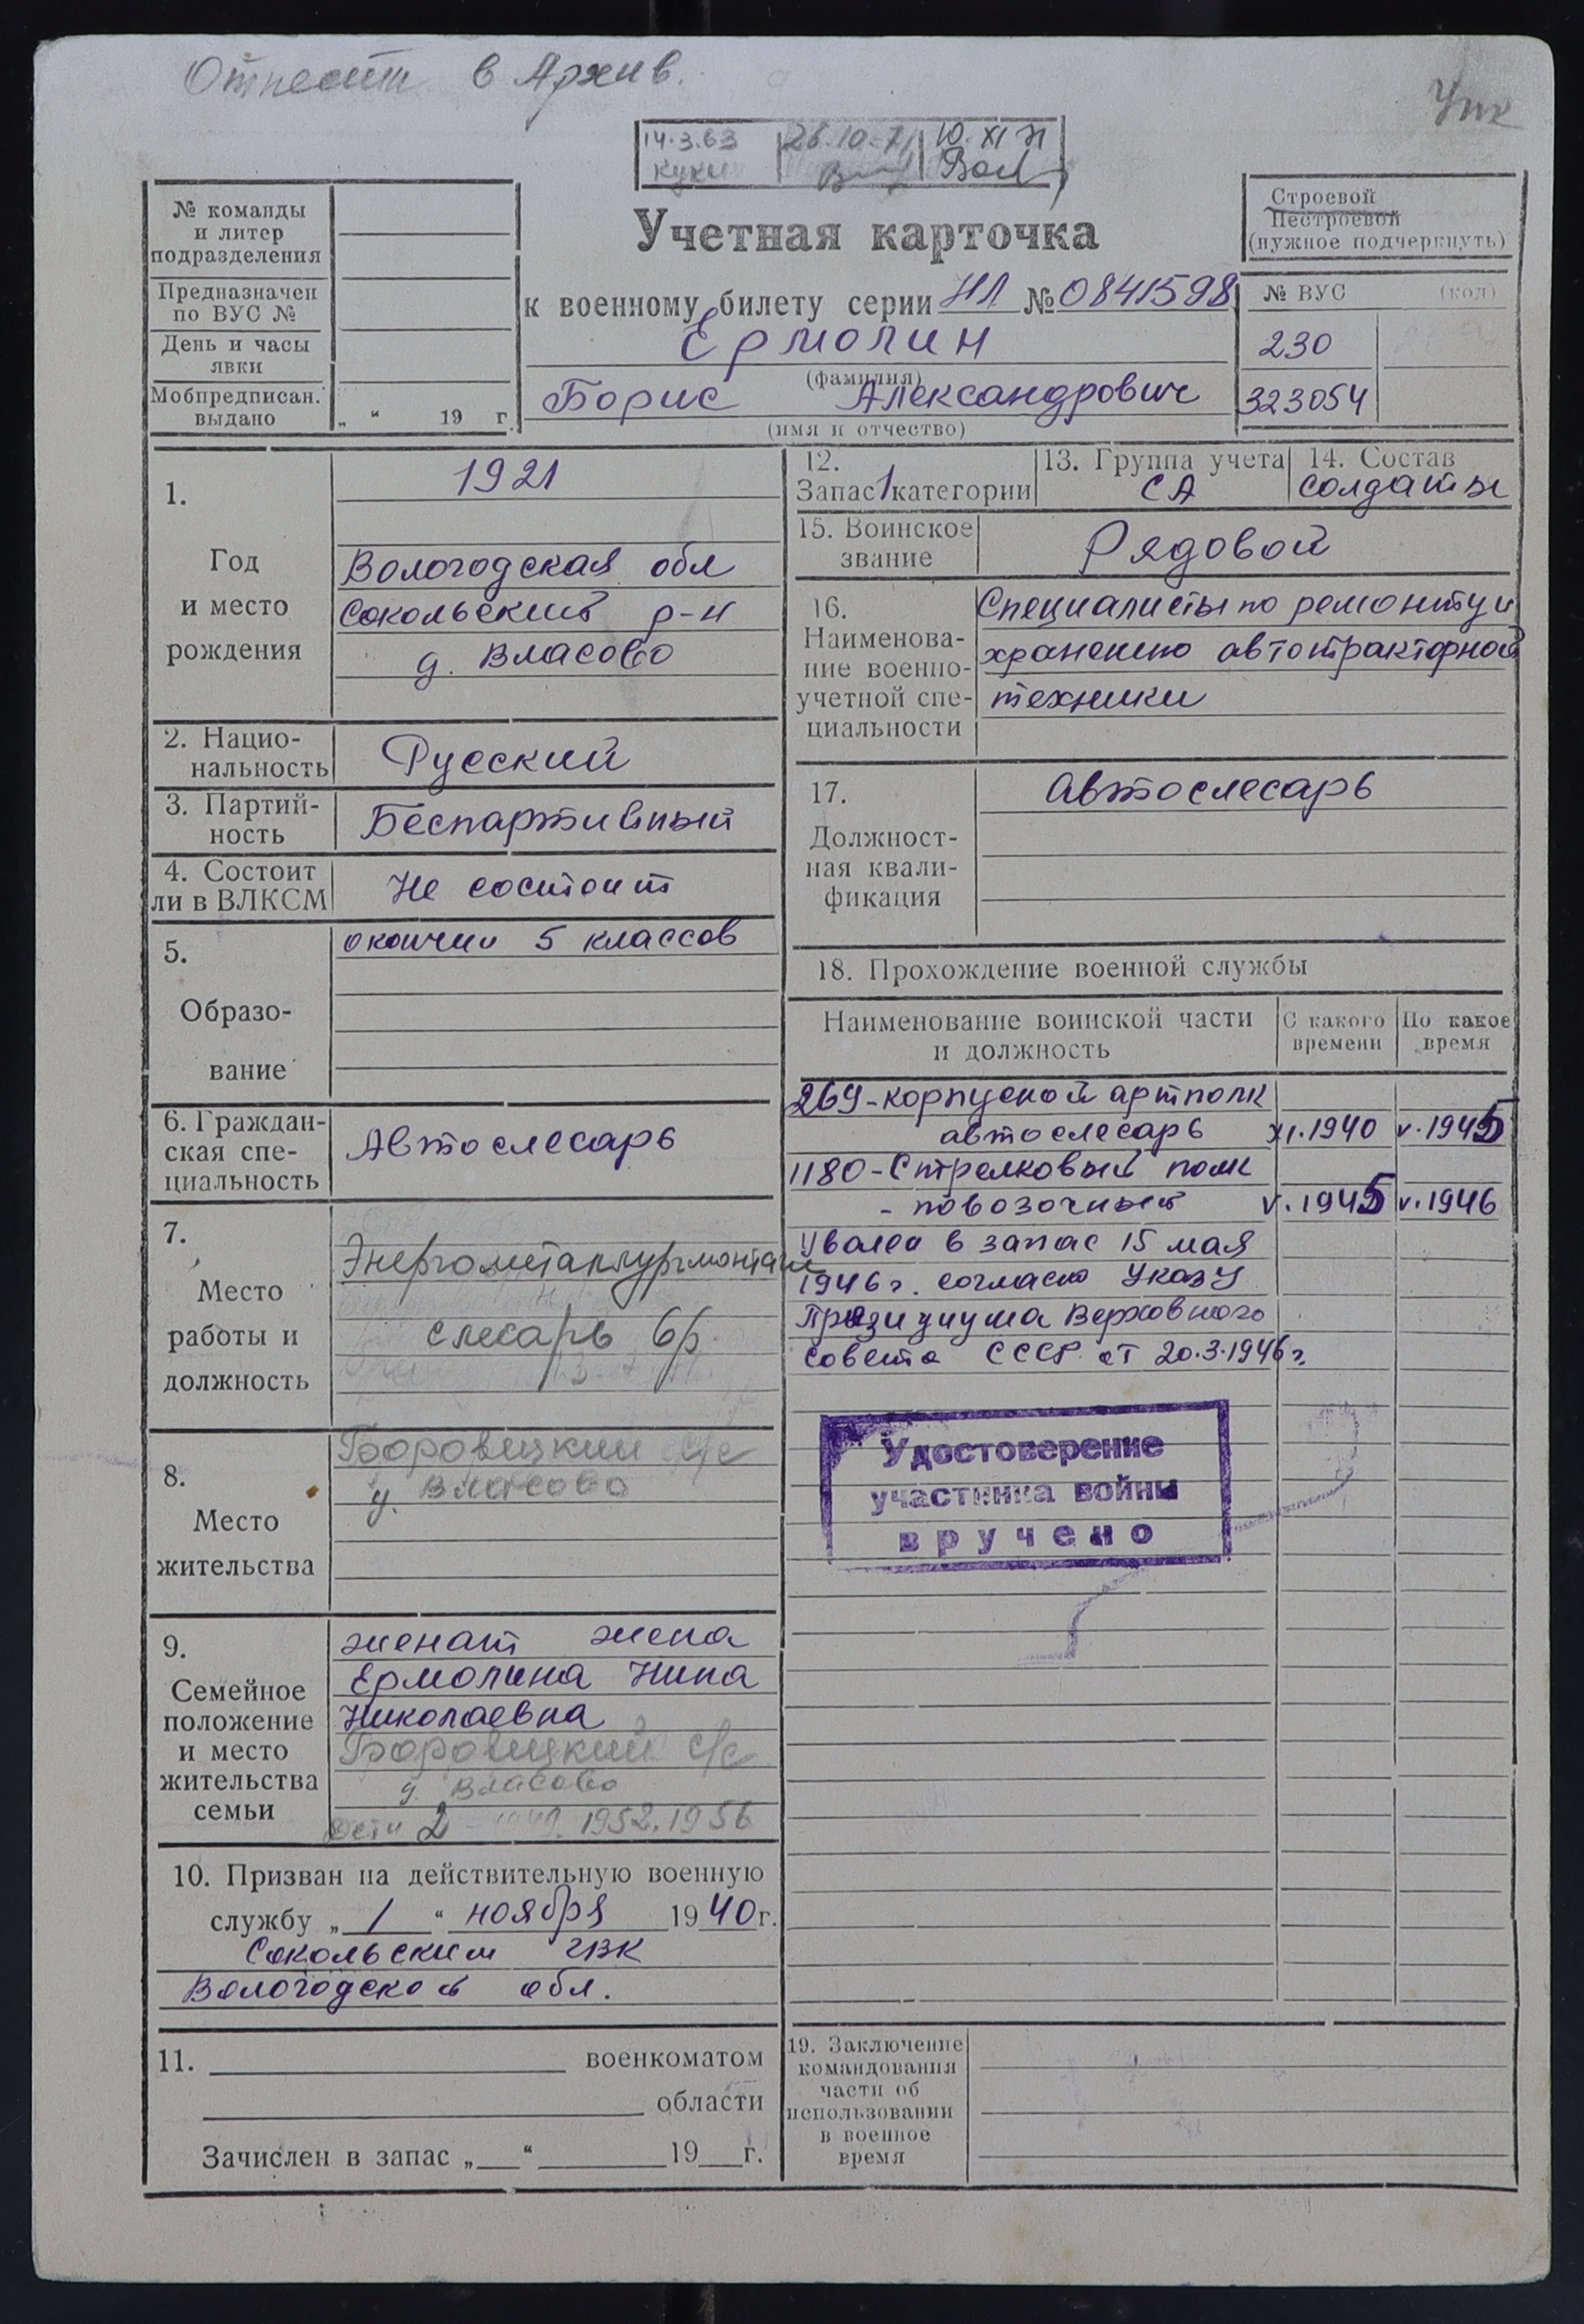 Отнести в Архив.
14.3.63 26.10.71 10.XI 71
Учетная карточка
к военному билету серии НЛ № 0841598
Ермолин
(фамилия)
Борис Александрович
(имя и отчество)
№ команды
и литер
подразделения
Предназначен
по ВУС №
День и часы
явки
Мобпредписан.
выдано „ “ 19 г.
Строевой
Нестроевой
(нужное подчеркнуть)
№ ВУС (код)
230
323054
1.
Год
и место
рождения
1921
Вологодская обл
Сокольский р-н
д. Власово
2. Нацио-
нальность
Русский
3. Партий-
ность
Беспартийный
4. Состоит
ли в ВЛКСМ
Не состоит
5.
Образо-
вание
окончил 5 классов
6. Граждан-
ская спе-
циальность
Автослесарь
7.
Место
работы и
должность
Энергометаллургмонтаж
слесарь 6р.
8.
Место
жительства
Боровецкий с/с
д. Власово
9.
Семейное
положение
и место
жительства
семьи
женат жена
Ермолина Нина
Николаевна
Боровецкий с/с
д. Власово
дети 2 1952. 1956
10. Призван на действительную военную
службу „ 1 “ ноября 1940 г.
Сокольским ГВК
Вологодской обл.
11. военкоматом
области
Зачислен в запас „ “ 19 г.
12.
Запас 1 категории
13. Группа учета
СА
14. Состав
солдаты
15. Воинское
звание
Рядовой
16.
Наименова-
ние военно-
учетной спе-
циальности
Специалисты по ремонту и
хранению автотракторной
техники
17.
Должност-
ная квали-
фикация
автослесарь
18. Прохождение военной службы
Наименование воинской части
и должность
С какого
времени
По какое
время
269-корпусной артполк
автослесарь XI.1940 V.1945
1180-Стрелковый полк
- повозочный V.1945 V.1946
Уволен в запас 15 мая
1946 г. согласно Указу
Президиума Верховного
Совета СССР от 20.3.1946 г.
Удостоверение
участника войны
вручено
19. Заключение
командования
части об
использовании
в военное
время